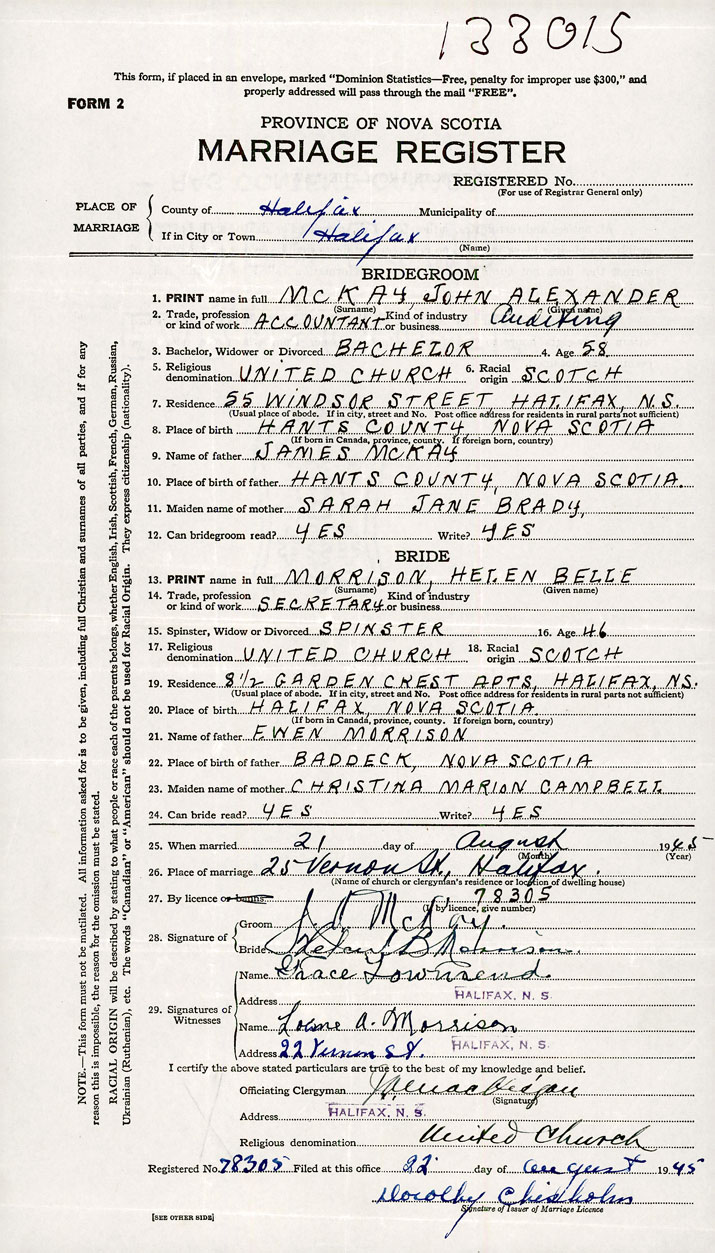 133015
This form, if placed in an envelope, marked "Dominion Statistics—Free, penalty for improper use $300," and
properly addressed will pass through the mail "FREE".
FORM 2
PROVINCE OF NOVA SCOTIA
MARRIAGE REGISTER
REGISTERED No.
(For use of Registrar General only)
PLACE OF MARRIAGE
County of Halifax Municipality of
If in City or Town Halifax
(Name)
BRIDEGROOM
1. PRINT name in full MCKAY, JOHN ALEXANDER
(Surname) (Given name)
2. Trade, profession or kind of work ACCOUNTANT Kind of industry or business Auditing
3. Bachelor, Widower or Divorced BACHELOR 4. Age 58
5. Religious denomination UNITED CHURCH 6. Racial origin SCOTCH
7. Residence 55 WINDSOR STREET HALIFAX, N.S.
(Usual place of abode. If in city, street and No. Post office address for residents in rural parts not sufficient)
8. Place of birth HANTS COUNTY, NOVA SCOTIA
(If born in Canada, province, county. If foreign born, country)
9. Name of father JAMES MCKAY
10. Place of birth of father HANTS COUNTY, NOVA SCOTIA.
11. Maiden name of mother SARAH JANE BRADY,
12. Can bridegroom read? YES Write? YES
BRIDE
13. PRINT name in full MORRISON, HELEN BELLE
(Surname) (Given name)
14. Trade, profession or kind of work SECRETARY Kind of industry or business
15. Spinster, Widow or Divorced SPINSTER 16. Age 46
17. Religious denomination UNITED CHURCH 18. Racial origin SCOTCH
19. Residence 8 1/2 GARDEN CREST APTS, HALIFAX, NS.
(Usual place of abode. If in city, street and No. Post office address for residents in rural parts not sufficient)
20. Place of birth HALIFAX, NOVA SCOTIA.
(If born in Canada, province, county. If foreign born, country)
21. Name of father EWEN MORRISON
22. Place of birth of father BADDECK, NOVA SCOTIA
23. Maiden name of mother CHRISTINA MARION CAMPBELL
24. Can bride read? YES Write? YES
25. When married 21 day of August 1945
(Month) (Year)
26. Place of marriage 25 Vernon St, Halifax.
(Name of church or clergyman's residence or location of dwelling house)
27. By licence or banns 78305
(If by licence, give number)
28. Signature of
Groom J. A. McKay.
Bride Helen B Morrison.
29. Signatures of Witnesses
Name Grace Townsend.
Address HALIFAX, N. S.
Name A. Morrison
Address 22 Vernon St. HALIFAX, N. S.
I certify the above stated particulars are true to the best of my knowledge and belief.
Officiating Clergyman
(Signature)
Address HALIFAX, N. S.
Religious denomination United Church
Registered No. 78305 Filed at this office 22 day of august 1945
Dorothy Chisholm
Signature of Issuer of Marriage Licence
[SEE OTHER SIDE]
NOTE.—This form must not be mutilated. All information asked for is to be given, including full Christian and surnames of all parties, and if for any
reason this is impossible, the reason for the omission must be stated.
RACIAL ORIGIN will be described by stating to what people or race each of the parents belongs, whether English, Irish, Scottish, French, German, Russian,
Ukrainian (Ruthenian), etc. The words "Canadian" or "American" should not be used for Racial Origin. They express citizenship (nationality).